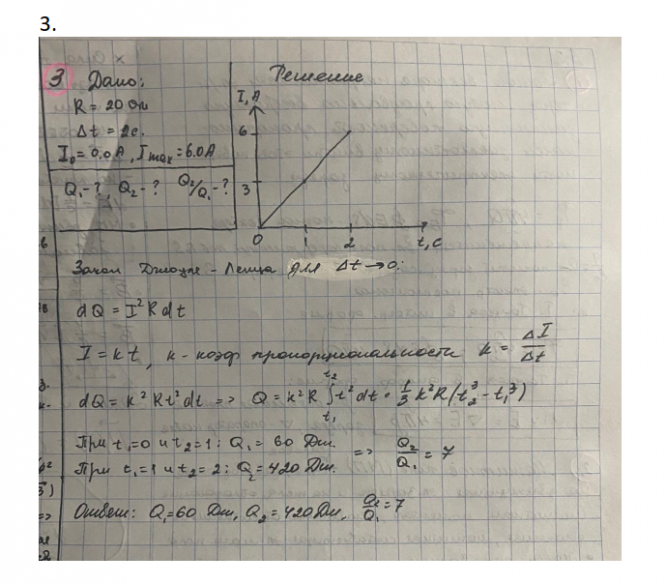 3.
3 Дано: Решение
R = 20 Ом
Δt = 2с.
I₀ = 0.0 A, Imax = 6.0 A
Q₁ - ? Q₂ - ? Q₂/Q₁ - ?
I, A
6
3
0 1 2 t, c
Закон Джоуля - Ленца для Δt → 0:
dQ = I² R dt
I = kt, k - коэф пропорциональности k = ΔI/Δt
dQ = k² R t² dt => Q = k² R ∫ₜ₁ᵗ² t² dt = 1/3 k² R (t₂³ - t₁³)
При t₁=0 и t₂=1: Q₁ = 60 Дж. => Q₂/Q₁ = 7
При t₁=1 и t₂=2: Q₂ = 420 Дж.
Ответ: Q₁=60 Дж, Q₂=420 Дж, Q₂/Q₁=7